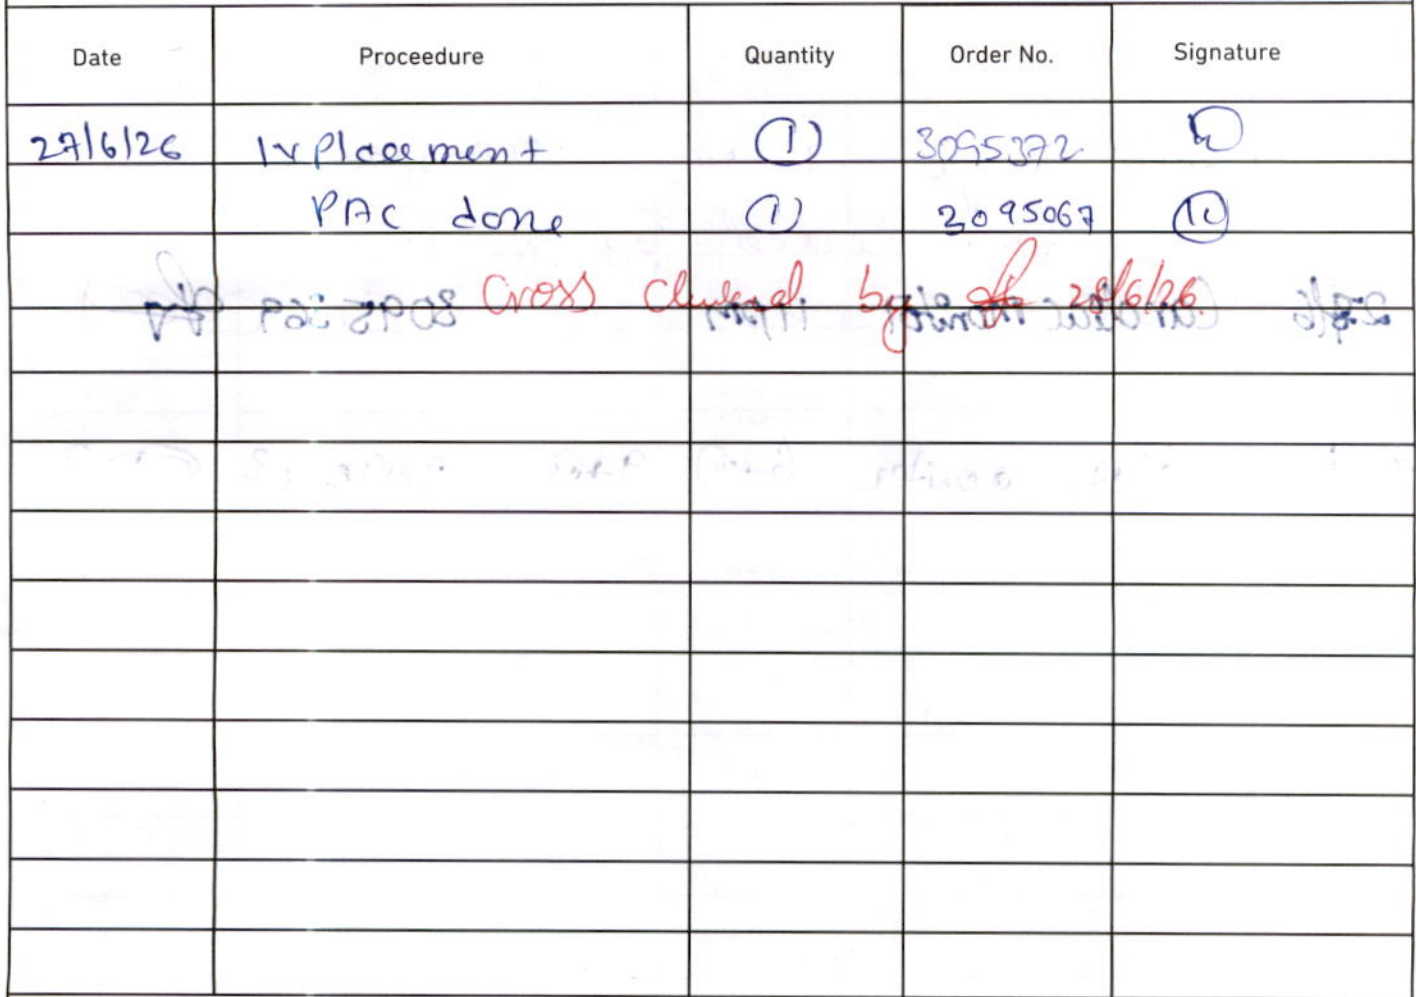 Date Proceedure Quantity Order No. Signature
27/6/26 IV Placement 1 3095372
PAC done 1 3095067
Cross checked by 28/6/26